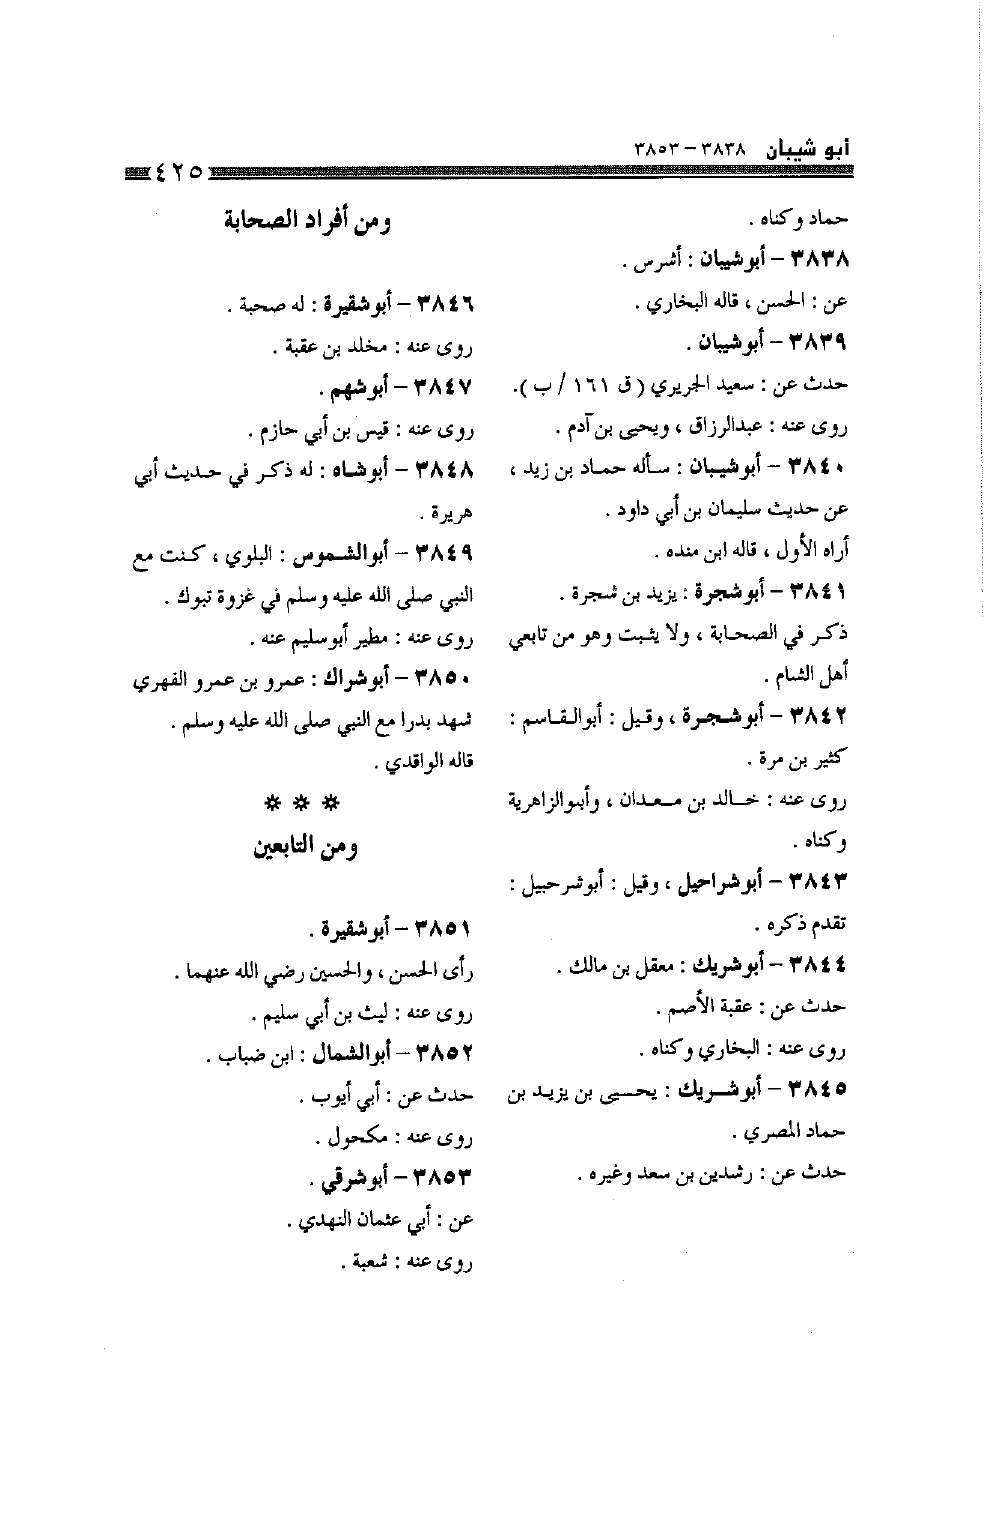 أبو شيبان ٣٨٣٨ – ٣٨٥٣
٤٢٥
حماد وكناه .
٣٨٣٨ – أبوشيبان : أشرس .
عن : الحسن ، قاله البخاري .
٣٨٣٩ – أبوشيبان .
حدث عن : سعيد الجريري ( ق ١٦١ / ب ).
روى عنه : عبدالرزاق ، ويحيى بن آدم .
٣٨٤٠ – أبوشيبان : سأله حماد بن زيد ،
عن حديث سليمان بن أبي داود .
أراه الأول ، قاله ابن منده .
٣٨٤١ – أبوشجرة : يزيد بن شجرة .
ذكر في الصحابة ، ولا يثبت وهو من تابعي
أهل الشام .
٣٨٤٢ – أبوشجرة ، وقيل : أبوالقاسم :
كثير بن مرة .
روى عنه : خالد بن معدان ، وأبوالزاهرية
وكناه .
٣٨٤٣ – أبوشراحيل ، وقيل : أبوشرحبيل :
تقدم ذكره .
٣٨٤٤ – أبوشريك : معقل بن مالك .
حدث عن : عقبة الأصم .
روى عنه : البخاري وكناه .
٣٨٤٥ – أبوشريك : يحيى بن يزيد بن
حماد المصري .
حدث عن : رشدين بن سعد وغيره .
ومن أفراد الصحابة
٣٨٤٦ – أبوشقيرة : له صحبة .
روى عنه : مخلد بن عقبة .
٣٨٤٧ – أبوشهم .
روى عنه : قيس بن أبي حازم .
٣٨٤٨ – أبوشاه : له ذكر في حديث أبي
هريرة .
٣٨٤٩ – أبوالشموس : البلوي ، كنت مع
النبي صلى الله عليه وسلم في غزوة تبوك .
روى عنه : مطير أبوسليم عنه .
٣٨٥٠ – أبوشراك : عمرو بن عمرو الفهري
شهد بدرا مع النبي صلى الله عليه وسلم .
قاله الواقدي .
* * *
ومن التابعين
٣٨٥١ – أبوشقيرة .
رأى الحسن ، والحسين رضي الله عنهما .
روى عنه : ليث بن أبي سليم .
٣٨٥٢ – أبوالشمال : ابن ضباب .
حدث عن : أبي أيوب .
روى عنه : مكحول .
٣٨٥٣ – أبوشرقي .
عن : أبي عثمان النهدي .
روى عنه : شعبة .